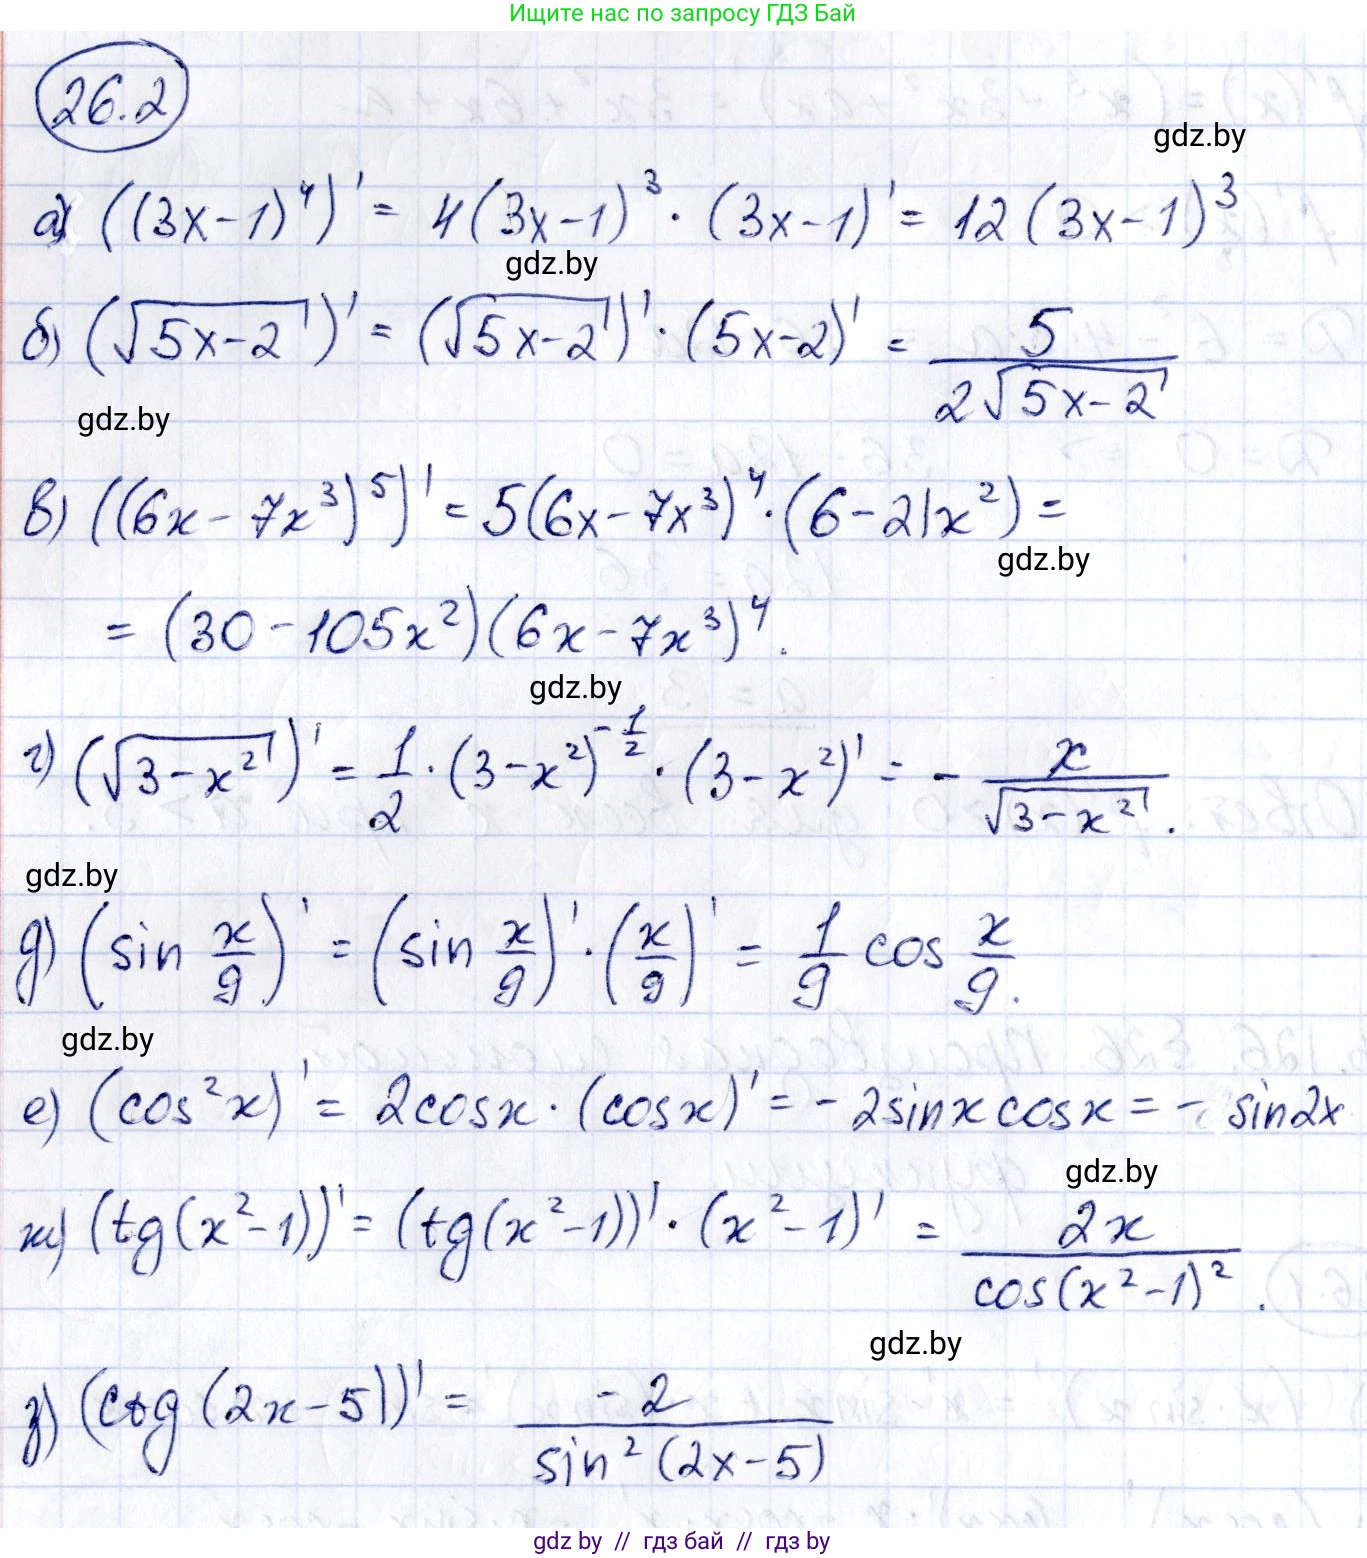 Ищите нас по запросу ГДЗ Бай
26.2
gdz.by
а) ((3x-1)⁴)' = 4(3x-1)³ · (3x-1)' = 12(3x-1)³
gdz.by
б) (√(5x-2))' = (√(5x-2))' · (5x-2)' = 5/(2√(5x-2))
gdz.by
в) ((6x-7x³)⁵)' = 5(6x-7x³)⁴ · (6-21x²) =
gdz.by
= (30-105x²)(6x-7x³)⁴.
gdz.by
г) (√(3-x²))' = 1/2 · (3-x²)^(-1/2) · (3-x²)' = - x/√(3-x²).
gdz.by
д) (sin x/9)' = (sin x/9)' · (x/9)' = 1/9 cos x/9.
gdz.by
е) (cos²x)' = 2cosx · (cosx)' = -2sinxcosx = -sin2x
gdz.by
ж) (tg(x²-1))' = (tg(x²-1))' · (x²-1)' = 2x/cos(x²-1)².
gdz.by
з) (ctg(2x-5))' = -2/sin²(2x-5)
gdz by // гдз бай // gdz by